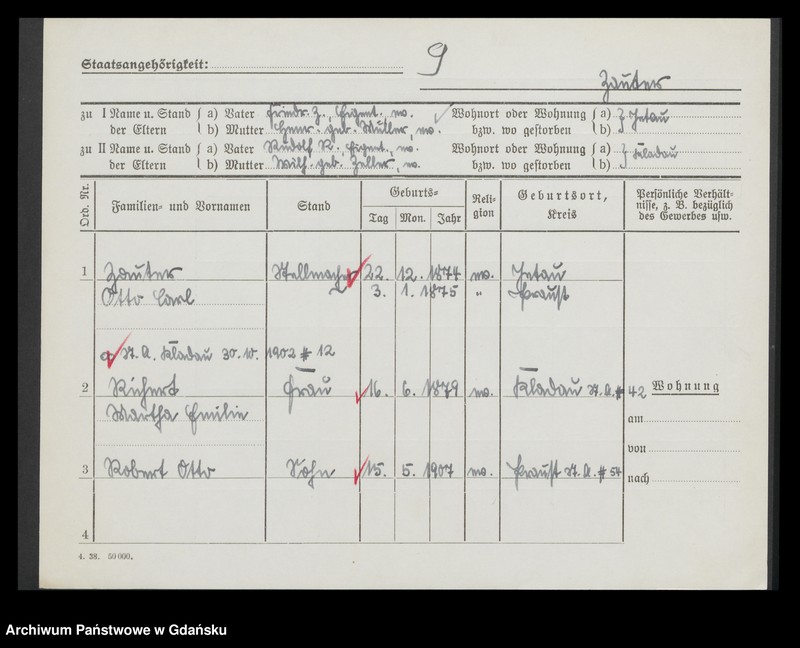 Staatsangehörigkeit:
9
Zauter
zu I Name u. Stand der Eltern
a) Vater Friedr. Z., Eigent. ev.
b) Mutter Henr. geb. Müller, ev.
Wohnort oder Wohnung bzw. wo gestorben
a) b) Jetau
zu II Name u. Stand der Eltern
a) Vater Rudolf R., Eigent., ev.
b) Mutter Wilh. geb. Zeller, ev.
Wohnort oder Wohnung bzw. wo gestorben
a) b) Kladau
Ord. Nr.
Familien- und Vornamen
Stand
Geburts-
Tag Mon. Jahr
Religion
Geburtsort, Kreis
Persönliche Verhältnisse, z. B. bezüglich des Gewerbes usw.
1 Zauter Stellmacher 22. 12. 1874 ev. Jetau
Otto Carl 3. 1. 1875 " Praust
St. A. Kladau 30. 10. 1902 # 12
2 Richert Frau 16. 6. 1879 ev. Kladau St. A. # 42
Martha Emilie
Wohnung
am
von
3 Robert Otto Sohn 15. 5. 1907 ev. Praust St. A. # 54
nach
4
4. 38. 50 000.
Archiwum Państwowe w Gdańsku